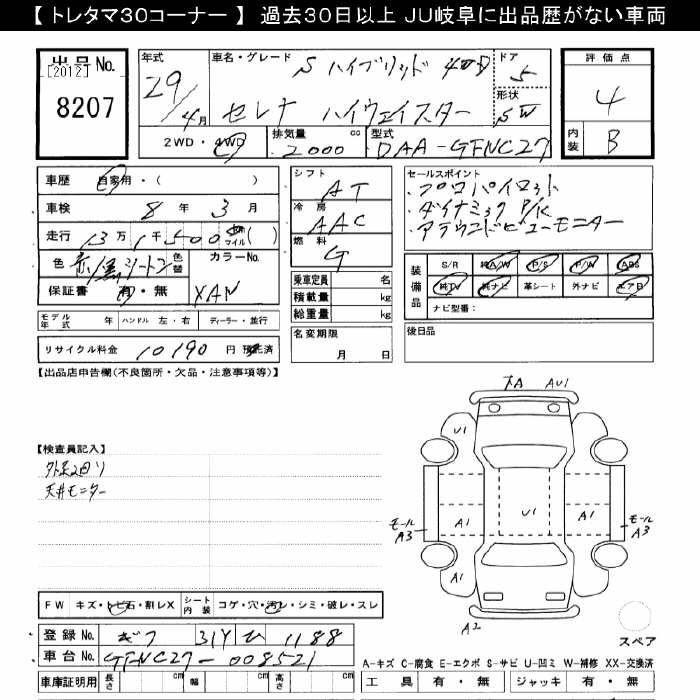 【トレタマ30コーナー】 過去30日以上 JU岐阜に出品歴がない車両
出品No. [2012] 8207
年式 29/4月
車名・グレード S ハイブリッド 4WD
セレナ ハイウェイスター
ドア 5
形状 SW
2WD・4WD 排気量 2000 cc 型式 DAA-GFNC27
評価点 4
内装 B
車歴 自家用・( )
車検 8年3月
走行 13万1千500 km マイル( )
色 赤/黒ツートン 色替 カラーNo. XAN
保証書 有・無
モデル年式 年 ハンドル 左・右 ディーラー・並行
リサイクル料金 10190円 預託済
シフト AT
冷房 AAC
燃料 G
乗車定員 名
積載量 kg
総重量 kg
名変期限 月 日
セールスポイント
・プロパイロット
・ダイナミックP/K
・アラウンドビューモニター
装備品 S/R 純A/W P/S P/W ABS
純TV 純ナビ 革シート 外ナビ エアB
ナビ型番:
後日品
【出品店申告欄(不良箇所・欠品・注意事項等)】
【検査員記入】
天井モニター
大A AU1
U1
モールA3 A1 U1 A1 モールA3
A1 A1
A2
スペア
FW キズ・トビ石・割レX シート内装 コゲ・穴・汚レ・シミ・破レ・スレ
登録No. ギフ 314 ひ 1188
車台No. GFNC27-008521
車庫証明用 長さ cm 幅 cm 高さ cm
A-キズ C-腐食 E-エクボ S-サビ U-凹ミ W-補修 XX-交換済
工具 有・無 ジャッキ 有・無